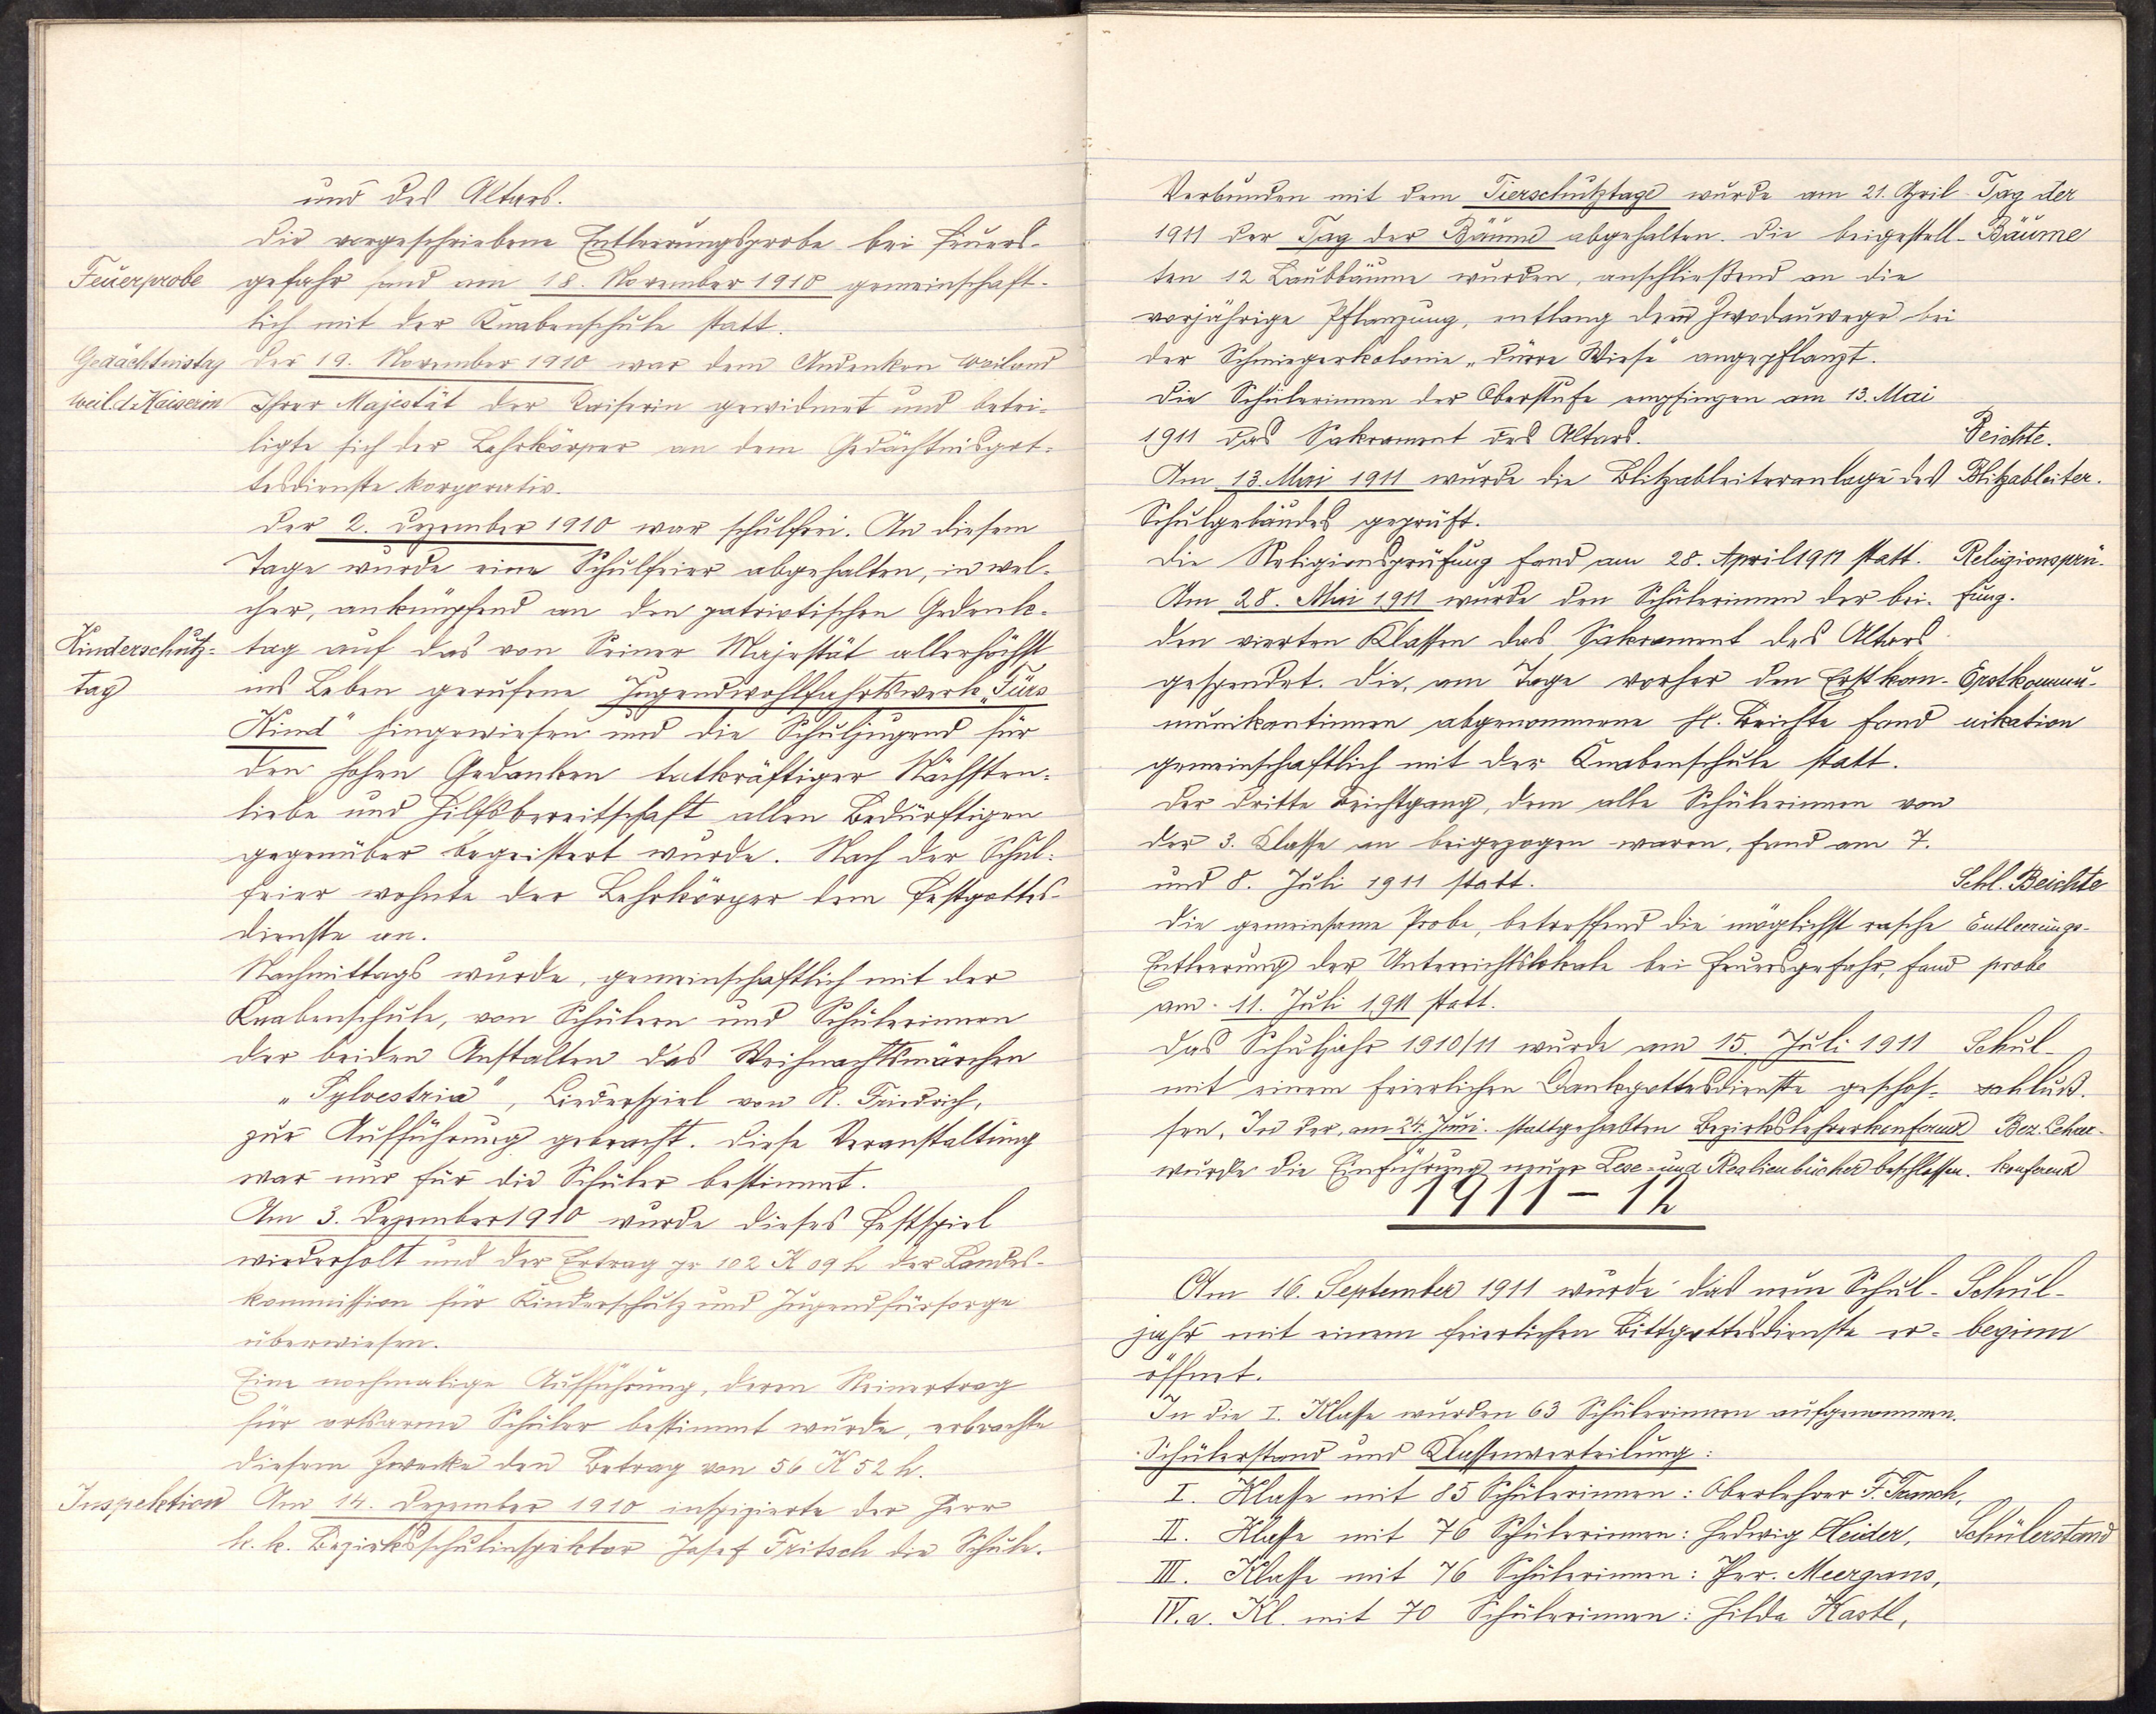 und des Altars.
Die vorgeschriebene Entleerungsprobe bei Feuers-
Feuerprobe gefahr fand am 18. November 1910 gemeinschaft-
lich mit der Knabenschule statt.
Gedächtnistag Der 19. November 1910 war dem Andenken weiland
weil. d. Kaiserin Ihrer Majestät der Kaiserin gewidmet und betei-
ligte sich der Lehrkörper an dem Gedächtnisgot-
tesdienste korporativ.
Der 2. Dezember 1910 war schulfrei. An diesem
Tage wurde eine Schulfeier abgehalten, in wel-
cher, anknüpfend an den patriotischen Gedenk-
Kinderschutz- tag auf das von Seiner Majestät allerhöchst
tag ins Leben gerufene Jugendwohlfahrtswerk „Fürs
Kind" hingewiesen und die Schuljugend für
den hohen Gedanken tatkräftiger Nächsten-
liebe und Hilfsbereitschaft allen Bedürftigen
gegenüber begeistert wurde. Nach der Schul-
feier wohnte der Lehrkörper dem Festgottes-
dienste an.
Nachmittags wurde, gemeinschaftlich mit der
Knabenschule, von Schülern und Schülerinnen
der beiden Anstalten das Weihnachtsmärchen
„Sylvestria", Liederspiel von R. Friedrich,
zur Aufführung gebracht. Diese Veranstaltung
war nur für die Schüler bestimmt.
Am 3. Dezember 1910 wurde dieses Festspiel
wiederholt und der Ertrag pr 102 K 09 h der Landes-
kommission für Kinderschutz und Jugendfürsorge
überwiesen.
Eine nochmalige Aufführung, deren Reinertrag
für ortsarme Schüler bestimmt wurde, erbrachte
diesem Zwecke den Betrag von 56 K 52 h.
Inspektion Am 14. Dezember 1910 inspizierte der Herr
k. k. Bezirksschulinspektor Josef Fritsch die Schule.
Verbunden mit dem Tierschutztage wurde am 21. April Tag der
1911 der Tag der Bäume abgehalten. Die beigestell- Bäume
ten 12 Laubbäume wurden, anschließend an die
vorjährige Pflanzung, entlang dem Zwodauwege bei
der Schmiegerkolonie „dürre Wiese" angepflanzt.
Die Schülerinnen der Oberstufe empfingen am 13. Mai
1911 das Sakrament des Altars. Beichte.
Am 13. Mai 1911 wurde die Blitzableiteranlage des Blitzableiter.
Schulgebäudes geprüft.
Die Religionsprüfung fand am 28. April 1911 statt. Religionsprü-
Am 28. Mai 1911 wurde den Schülerinnen der bei- fung.
den vierten Klassen das Sakrament des Altars
gespendet. Die, am Tage vorher den Erstkom- Erstkommu-
munikantinnen abgenommene hl. Beichte fand nikation
gemeinschaftlich mit der Knabenschule statt.
Der dritte Beichtgang, dem alle Schülerinnen von
der 3. Klasse an beigezogen waren, fand am 7.
und 8. Juli 1911 statt. Schl. Beichte
Die gemeinsame Probe, betreffend die möglichst rasche Entleerungs-
Entleerung der Unterrichtslokale bei Feuersgefahr, fand probe
am 11. Juli 1911 statt.
Das Schuljahr 1910/11 wurde am 15. Juli 1911 Schul-
mit einem feierlichen Dankgottesdienste geschlos- schluß.
sen. In der, am 24. Juni stattgehabten Bezirkslehrerkonferenz Bez. Lehrer-
wurde die Einführung neuer Lese- und Realienbücher beschlossen. konferenz
1911-12
Am 16. September 1911 wurde das neue Schul- Schul-
jahr mit einem feierlichen Bittgottesdienste er- beginn
öffnet.
In die I. Klasse wurden 63 Schülerinnen aufgenommen.
Schülerstand und Klassenverteilung:
I. Klasse mit 85 Schülerinnen: Oberlehrer F.
II. Klasse mit 76 Schülerinnen: Hedwig Heider, Schülerstand
III. Klasse mit 76 Schülerinnen: Meergans,
IV. a. Kl. mit 70 Schülerinnen: Hilda Kastl,